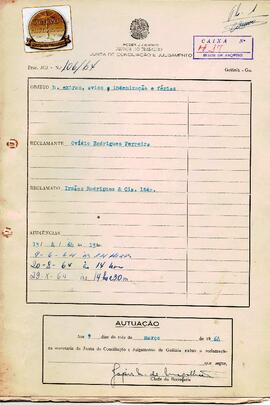 PODER JUDICIÁRIO
JUSTIÇA DO TRABALHO
JUNTA DE CONCILIAÇÃO E JULGAMENTO
CAIXA Nº
Proc. JCJ - Nº 106/64
Goiânia - Go.
OBJETO h. extras, aviso, indenização e férias.
RECLAMANTE Ovídio Rodrigues Ferreira
RECLAMADO Irmãos Rodrigues & Cia. Ltda.
AUDIÊNCIAS
20-8-64 às 14 hor
às 14 hs 30m.
AUTUAÇÃO
Aos 9 dias do mês de março de 1964
na secretaria da Junta de Conciliação e Julgamento de Goiânia autuo a reclamação
que segue,
Chefe da Secretaria